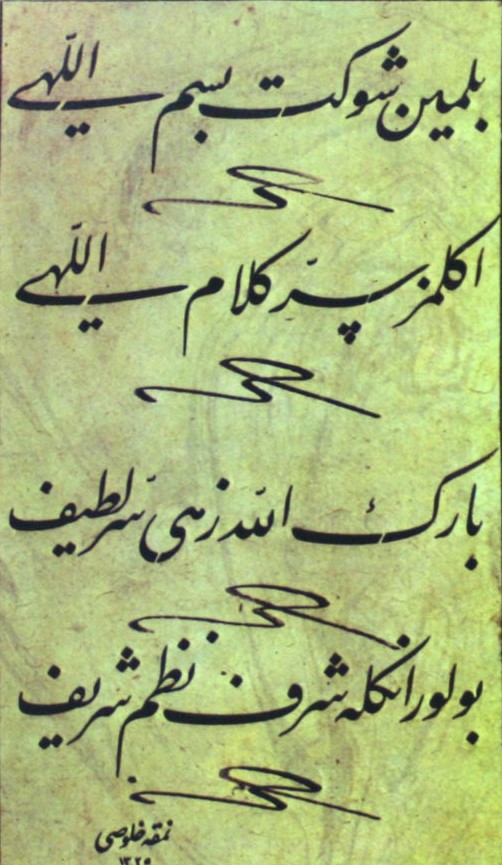 بلمین شوکت بسم اللّهی
اکلمز سرّ کلام اللّهی
بارک اللّه زهی سرّ لطیف
بولور انکله شرف نظم شریف
نمقه خلوصی